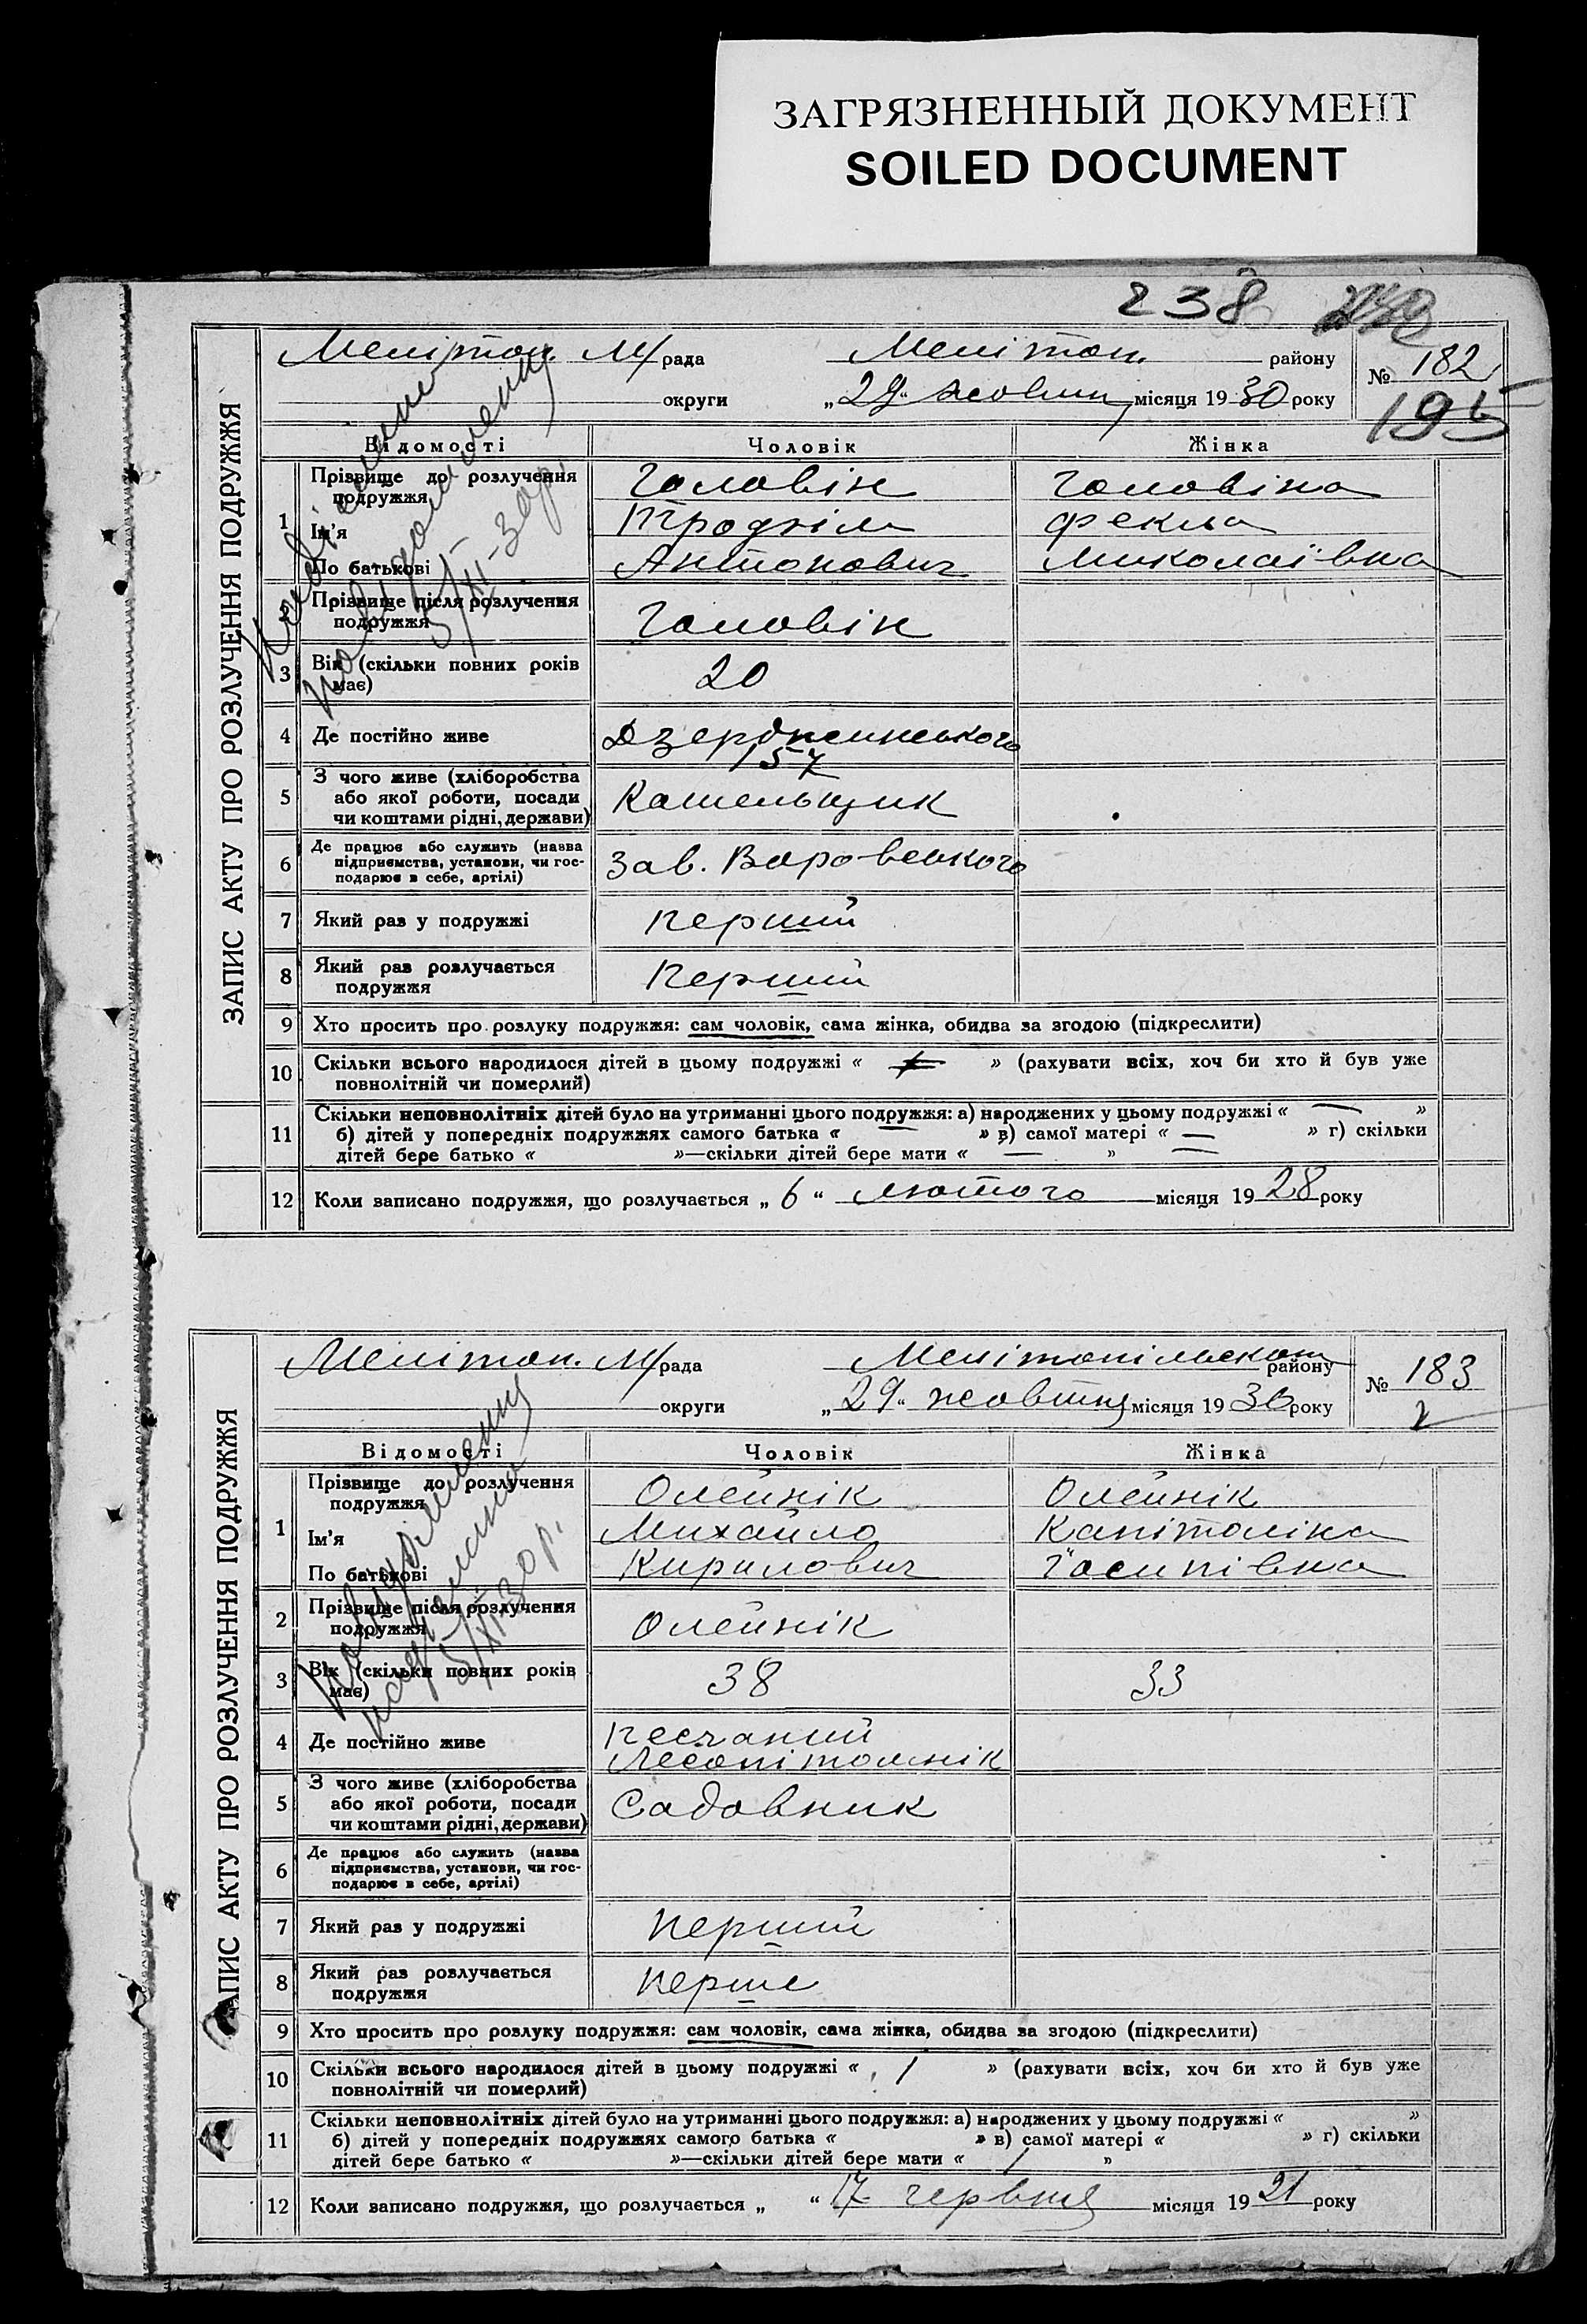 ЗАГРЯЗНЕННЫЙ ДОКУМЕНТ
SOILED DOCUMENT
238
ЗАПИС АКТУ ПРО РОЗЛУЧЕННЯ ПОДРУЖЖЯ
Мелітоп. М/рада Мелітоп. району № 182
округи „29“ жовтня місяця 1930 року 195
Відомості Чоловік Жінка
1 Прізвище до розлучення подружжя Головін Головіна
Ім'я Трохим Фекла
По батькові Антонович Миколаївна
2 Прізвище після розлучення
подружжя Головін
3 Вік (скільки повних років
має) 20
4 Де постійно живе Дзержинського
157
5 З чого живе (хліборобства
або якої роботи, посади
чи коштами рідні, держави) Котельщик
6 Де працює або служить (назва
підприємства, установи, чи гос-
подарює в себе, артілі) Зав. Воровського
7 Який раз у подружжі перший
8 Який раз розлучається
подружжя перший
9 Хто просить про розлуку подружжя: сам чоловік, сама жінка, обидва за згодою (підкреслити)
10 Скільки всього народилося дітей в цьому подружжі « » (рахувати всіх, хоч би хто й був уже
повнолітній чи померлий)
11 Скільки неповнолітніх дітей було на утриманні цього подружжя: а) народжених у цьому подружжі « — »
б) дітей у попередніх подружжях самого батька « — » в) самої матері « — » г) скільки
дітей бере батько « »—скільки дітей бере мати « — »
12 Коли записано подружжя, що розлучається „6“ лютого місяця 1928 року
Надіслано
повідомлення
5/XI-30р.
ЗАПИС АКТУ ПРО РОЗЛУЧЕННЯ ПОДРУЖЖЯ
Мелітоп. М/рада Мелітопільського району № 183
округи „29“ жовтня місяця 1930 року
Відомості Чоловік Жінка
1 Прізвище до розлучення
подружжя Олейнік Олейнік
Ім'я Михайло Капітоліна
По батькові Кирилович Йосипівна
2 Прізвище після розлучення
подружжя Олейнік
3 Вік (скільки повних років
має) 38 33
4 Де постійно живе Песчаний
Лесопітомнік
5 З чого живе (хліборобства
або якої роботи, посади
чи коштами рідні, держави) Садовник
6 Де працює або служить (назва
підприємства, установи, чи гос-
подарює в себе, артілі)
7 Який раз у подружжі перший
8 Який раз розлучається
подружжя перше
9 Хто просить про розлуку подружжя: сам чоловік, сама жінка, обидва за згодою (підкреслити)
10 Скільки всього народилося дітей в цьому подружжі « 1 » (рахувати всіх, хоч би хто й був уже
повнолітній чи померлий)
11 Скільки неповнолітніх дітей було на утриманні цього подружжя: а) народжених у цьому подружжі « »
б) дітей у попередніх подружжях самого батька « » в) самої матері « » г) скільки
дітей бере батько « »—скільки дітей бере мати « 1 »
12 Коли записано подружжя, що розлучається „ “ 17 червня місяця 1921 року
Повідомлення
надіслано
5/XI-30р.